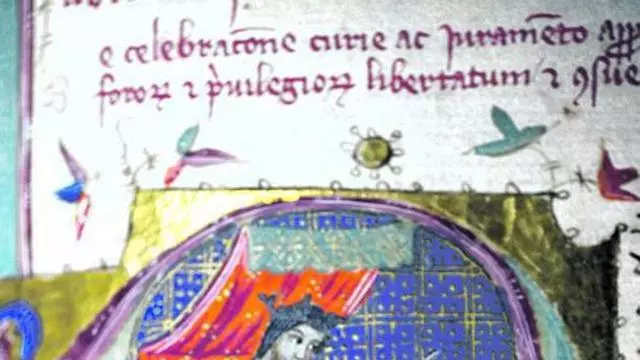 e celebracōne curie ac juramēto app
foroꝝ ⁊ p̉uilegioꝝ libertatum ⁊ ꝯsue